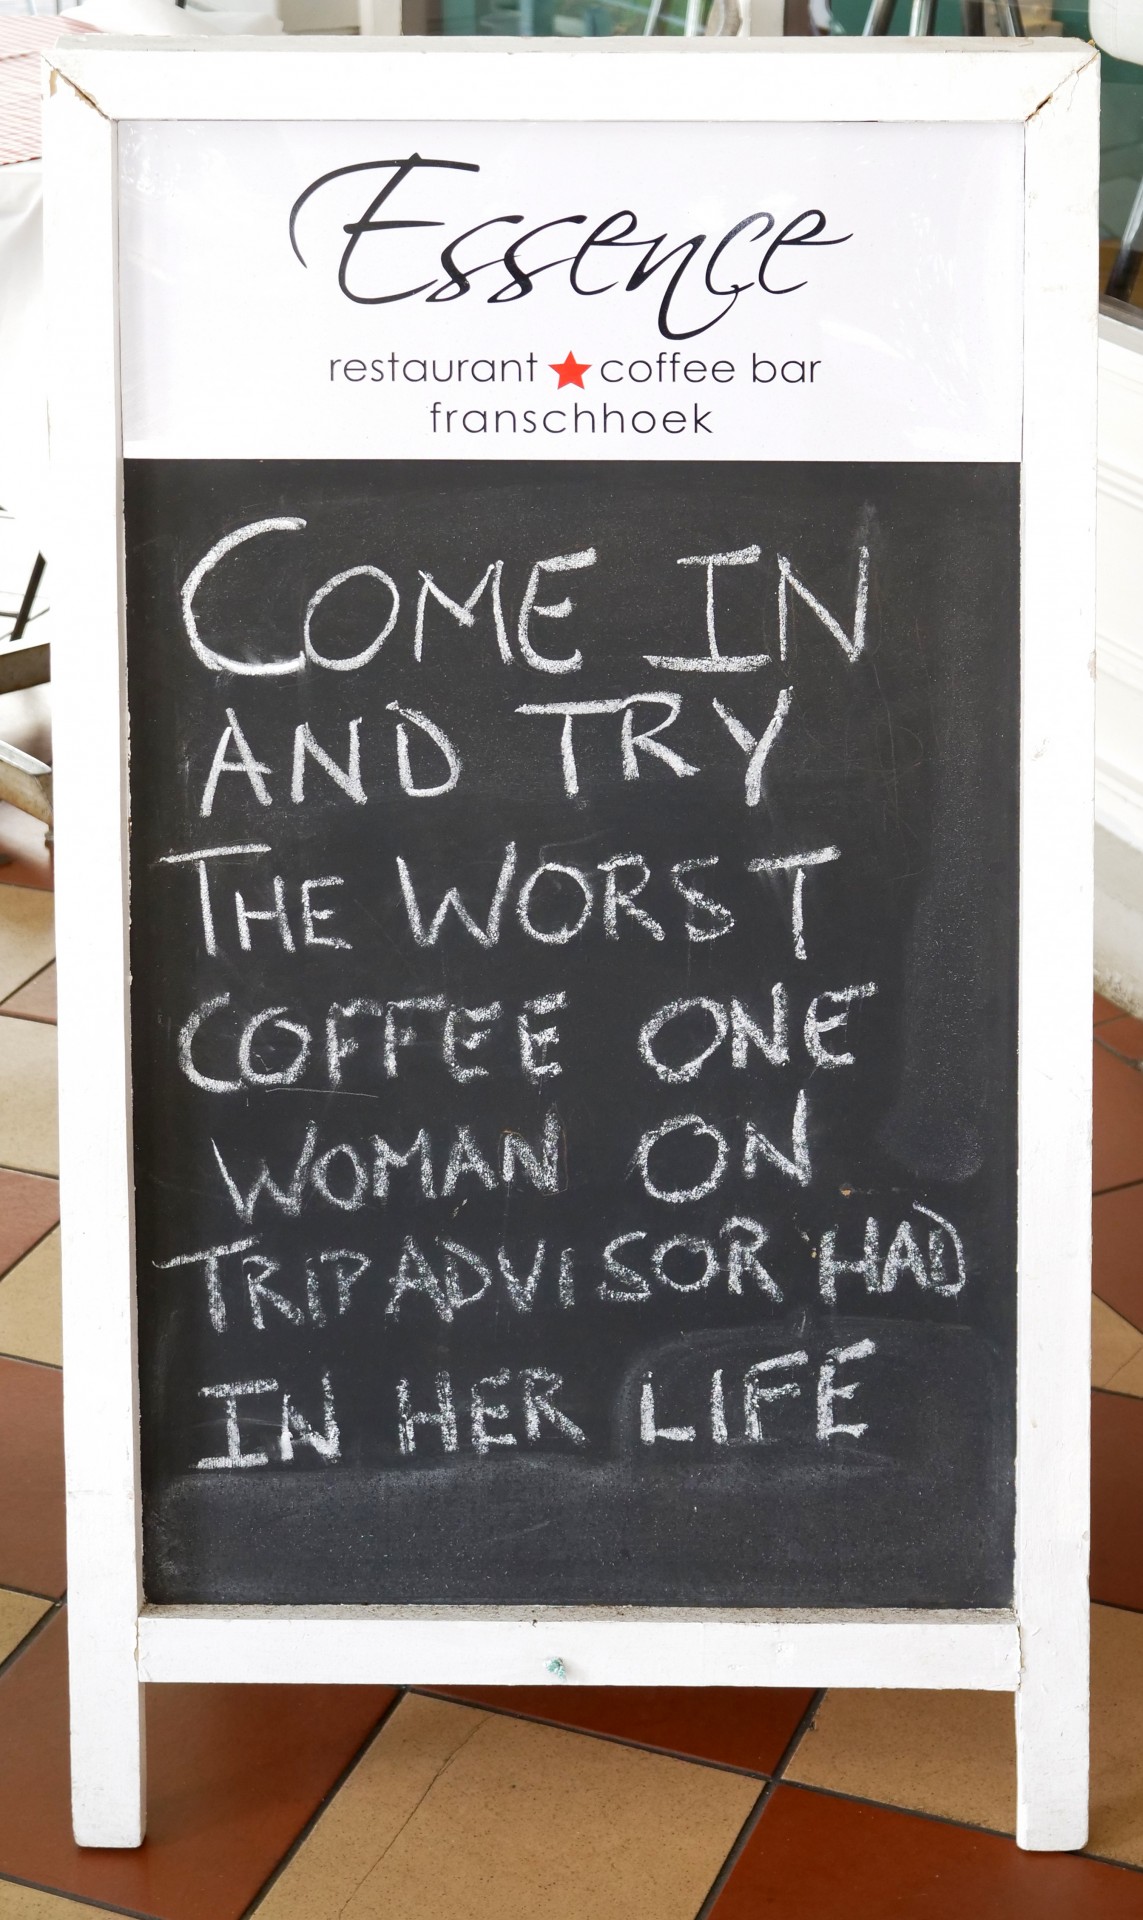 Essence
restaurant ★ coffee bar
franschhoek
COME IN
AND TRY
THE WORST
COFFEE ONE
WOMAN ON
TRIPADVISOR HAD
IN HER LIFE